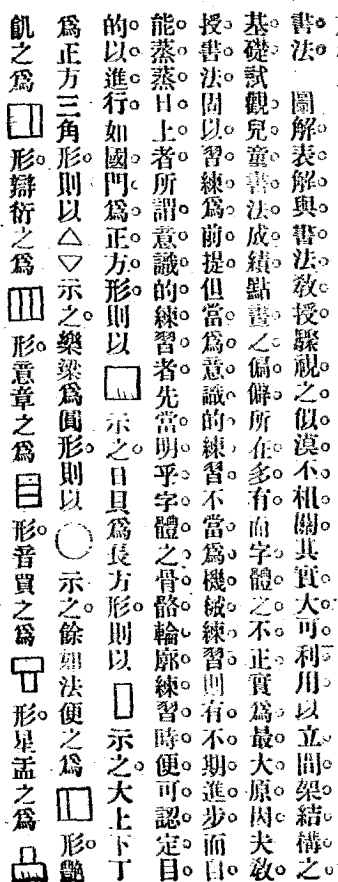 書法 圖解表解與書法教授驟視之似漠不相關其實大可利用以立間架結構之
基礎試觀兒童書法成績點畫之偏僻所在多有而字體之不正實爲最大原因夫敎
授書法固以習練爲前提但當爲意識的練習不當爲機械練習則有不期進步而自
能蒸蒸日上者所謂意識的練習者先當明乎字體之骨骼輪廓練習時便可認定目
的以進行如國門爲正方形則以□示之日貝爲長方形則以▯示之大上下丁
爲正方三角形則以△▽示之樂梁爲圓形則以○示之餘如法便之爲形艷
飢之爲形辯衍之爲形意章之爲形音買之爲形星盂之爲